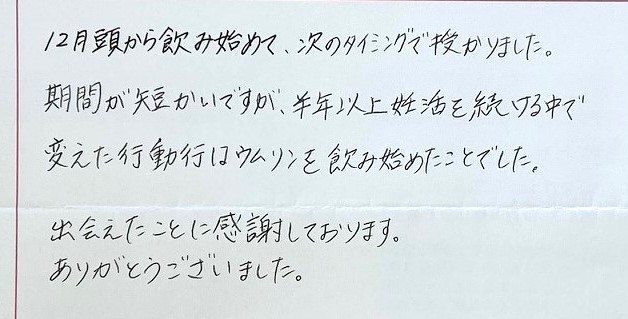 12月頭から飲み始めて、次のタイミングで授かりました。
期間が短かいですが、半年以上妊活を続ける中で
変えた行動行はウムリンを飲み始めたことでした。
出会えたことに感謝しております。
ありがとうございました。